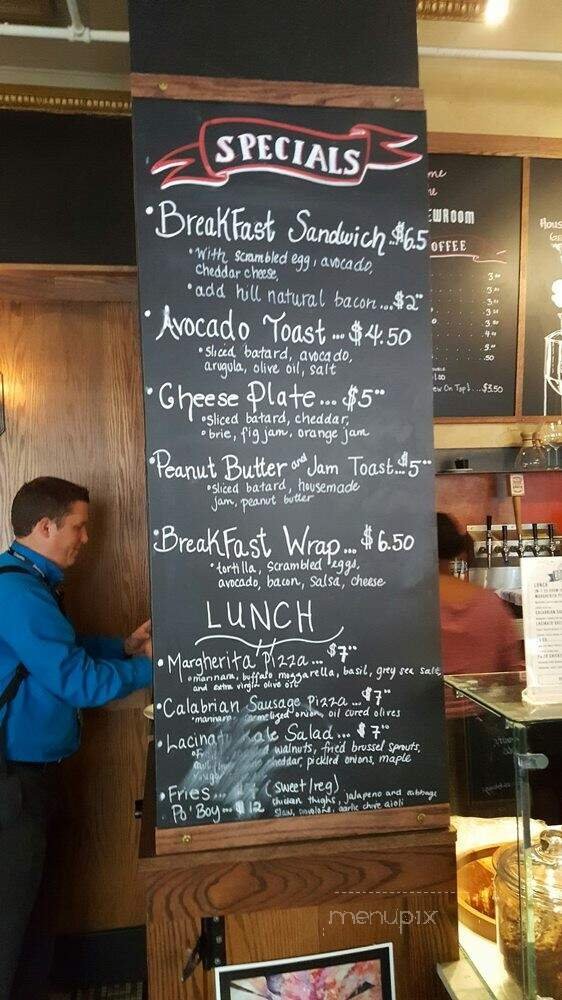 SPECIALS
• Breakfast Sandwich..$6.5
• with scrambled egg, avocado,
cheddar cheese,
• add hill natural bacon...$2⁰⁰
• Avocado Toast...$4.50
• sliced batard, avocado,
arugula, olive oil, salt
• Cheese Plate...$5⁰⁰
• sliced batard, cheddar,
• brie, fig jam, orange jam
• Peanut Butter and Jam Toast..$5⁰⁰
• sliced batard, housemade
jam, peanut butter
• Breakfast Wrap...$6.50
• tortilla, scrambled eggs,
avocado, bacon, salsa, cheese
LUNCH
• Margherita Pizza...$7⁰⁰
• marinara, buffalo mozzarella, basil, grey sea salt,
and extra virgin olive oil
• Calabrian Sausage Pizza...$7⁰⁰
• marinara, carmelized onion, oil cured olives
• Lacinato Kale Salad...$7⁰⁰
walnuts, fried brussel sprouts,
cheddar, pickled onions, maple
• Fries (sweet/reg)
Po'Boy...$12 chicken thighs, jalapeno and cabbage
slaw, provolone, garlic chive aioli
EWROOM
OFFEE
3.50
LUNCH
menupix